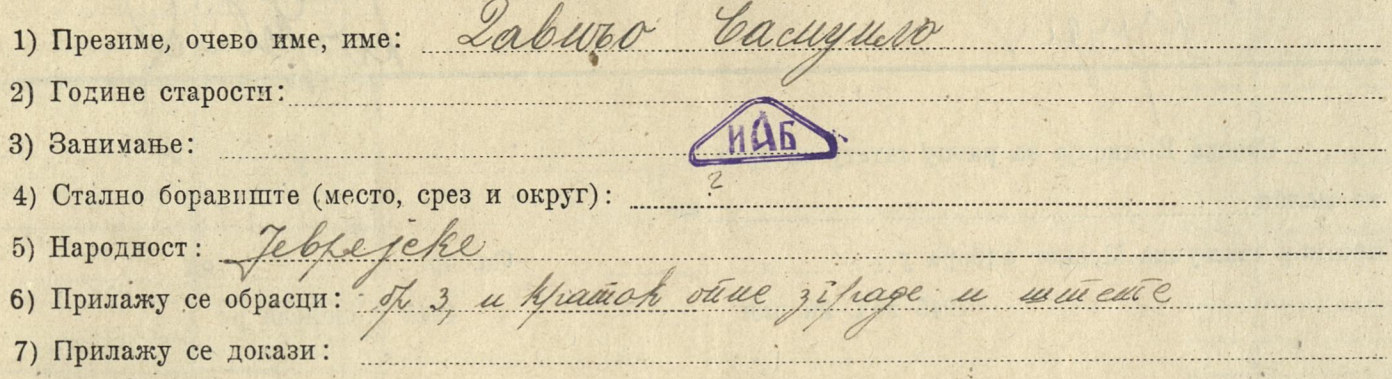 1) Презиме, очево име, име: Давичо Самуило
2) Године старости:
3) Занимање:
ИАБ
4) Стално боравиште (место, срез и округ): ?
5) Народност: Јеврејске
6) Прилажу се обрасци: бр 3, и кратак опис зграде и штете
7) Прилажу се докази: